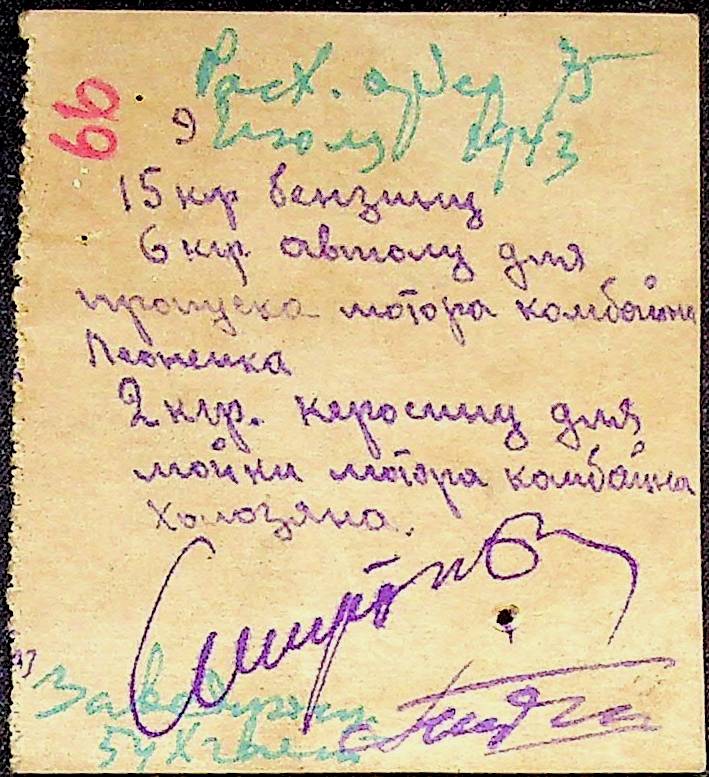 66
Расх. ордер 75
9 Июля 1943
15 кгр бензину
6 кгр. автолу для
пропуска мотора комбайна
Леоненка
2 кгр. керосину для
мойки мотора комбайна
Холозяна.
Смирнов